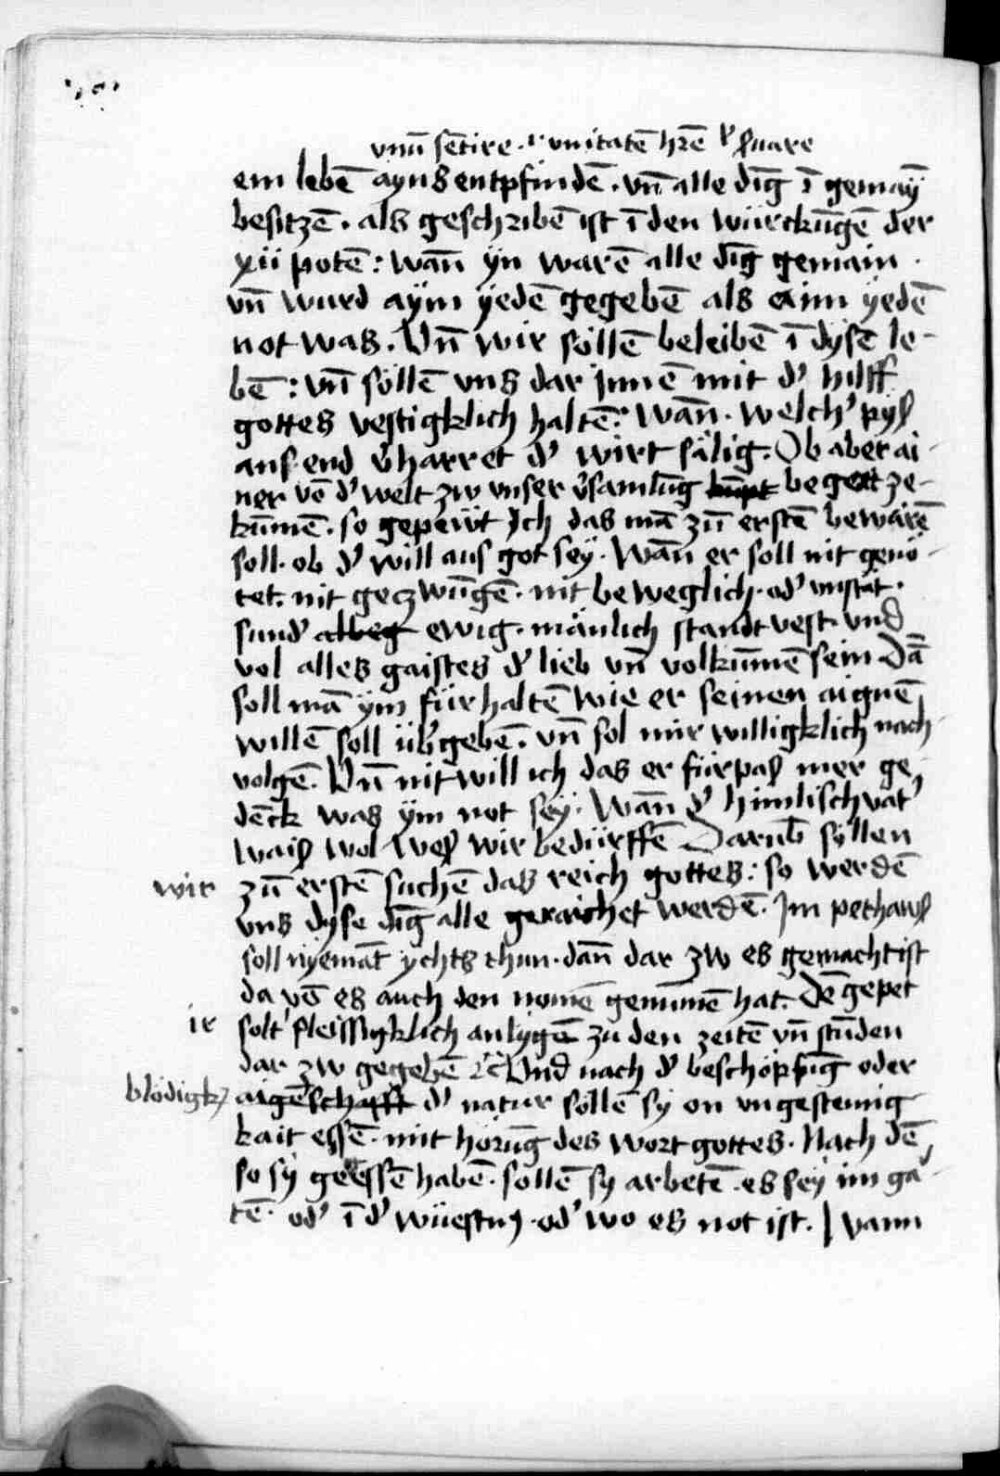 vnū sētire · i · vnitatē hrē ł ſuare
em lebē ayns entpfindē · vn̄ alle dīg ī gemaȳ
besitzē · als geschribē ist ī den würckūgē der
xii potē : wan̄ yn warē alle dīg gemain ·
vn̄ wurd aÿm ÿedē gegebē als aim ÿedē
not was . Vn̄ wir söllē beleibē ī dysē le-
bē : vn̄ söllē vns dar jnnē mit d' hilff
gottes vestigklich haltē : wan̄ · welch' pyſ
aus end v'harret d' wirt sälig . Ob aber ai-
ner vō d' welt zw vnser v'samlūg kūpt begert ze-
kūmē · so gepewt Jch das mā zū erstē bewarē
soll · ob d' will aus got sey · Wan̄ er soll nit genö-
tet · nit geczwūgē · nit beweglich · od' vnstät ·
sund' albeg ewig · mänlich standt vest · vnd
vol alles gaistes d' lieb vn̄ volkūmē sein Dā
soll mā ym für haltē wie er seinen aignē
willē soll üb'gebē · vn̄ sol mir willigklich nach-
volgē . Vn̄ nit will ich das er fürpaſ mer ge-
dēck was ÿm not sey : Wan̄ d' himlisch vat'
waiſ wol weſ wir bedürffē Darūb söllen
wir zū erstē suchē das reich gottes : so werdē
vns dyse dīg alle geraichet werdē . Jm pethawſ
soll nÿemāt ychts thun · dan̄ dar zw es gemacht ist
da vō es auch den nomē genūmē hat . Dē gepet
ir solt fleissigklich anlygē zu den zeitē vn̄ stūden
dar zw gegebē ꝛc̄ Vnd nach d' beschöpfūg oder
blödigkꝫ aigēschafft d' natur söllē sy on vngestemig-
kait essē · mit hörūg des wort gottes · Nach dē
so sÿ geessē habē · sollē sy arbetē · es sey im ga'-
tē · od' ī d' wüestnꝫ · od' wo es not ist . | vann